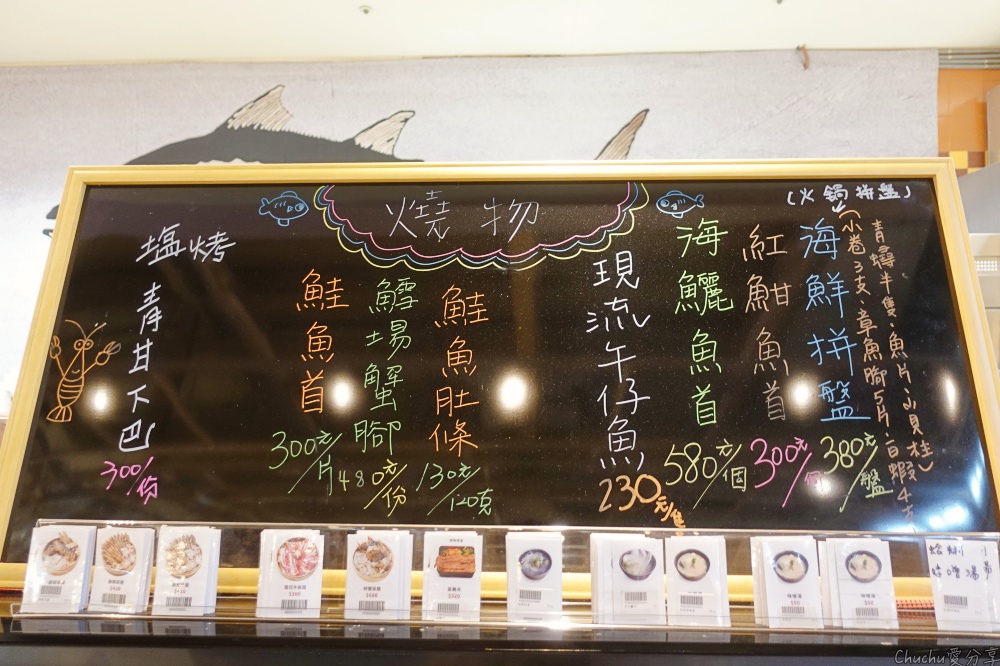 (火鍋拚盤)
海鮮拼盤
(小卷3支、章魚腳5片、白蝦4支
青蟳半隻、魚片、小貝柱)
380元/盤
紅魽魚首
300元/個
海鱺魚首
580元/個
現流午仔魚
230元/隻
燒物
鮭魚肚條
130元/120克
鱈場蟹腳
480元/份
鮭魚首
300元/片
塩烤
青甘下巴
300/份
蛤蜊
味噌湯
Chuchu愛分享